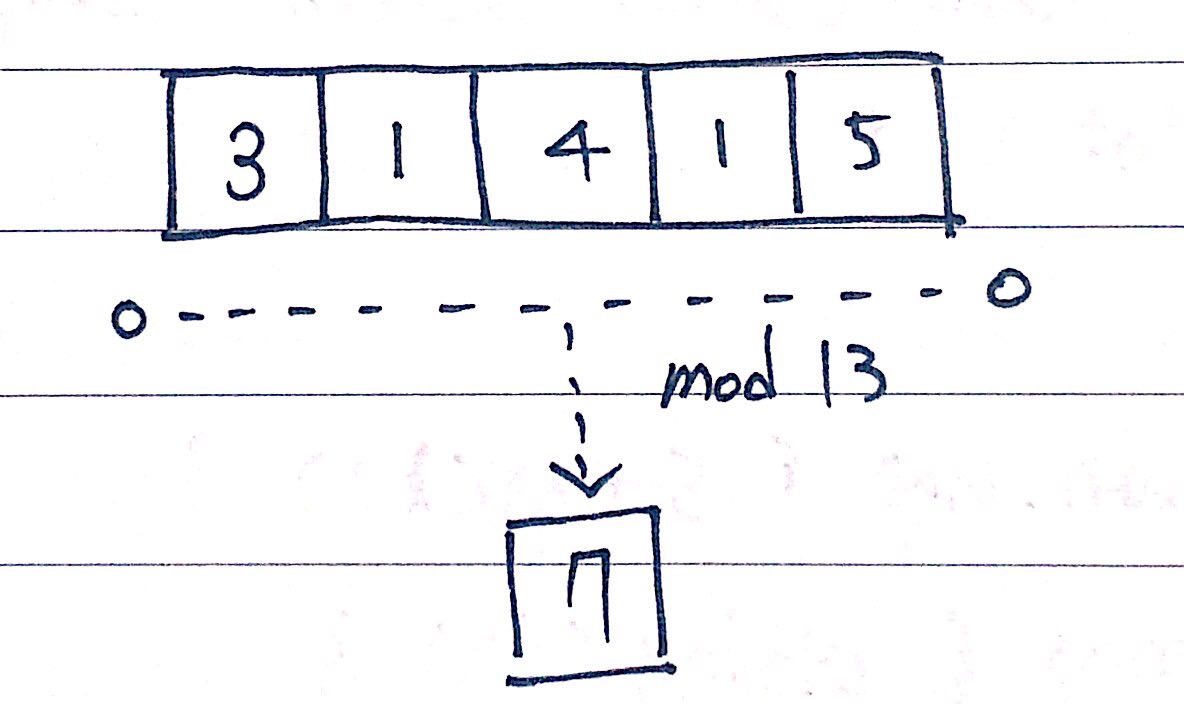 3 1 4 1 5
mod 13
7